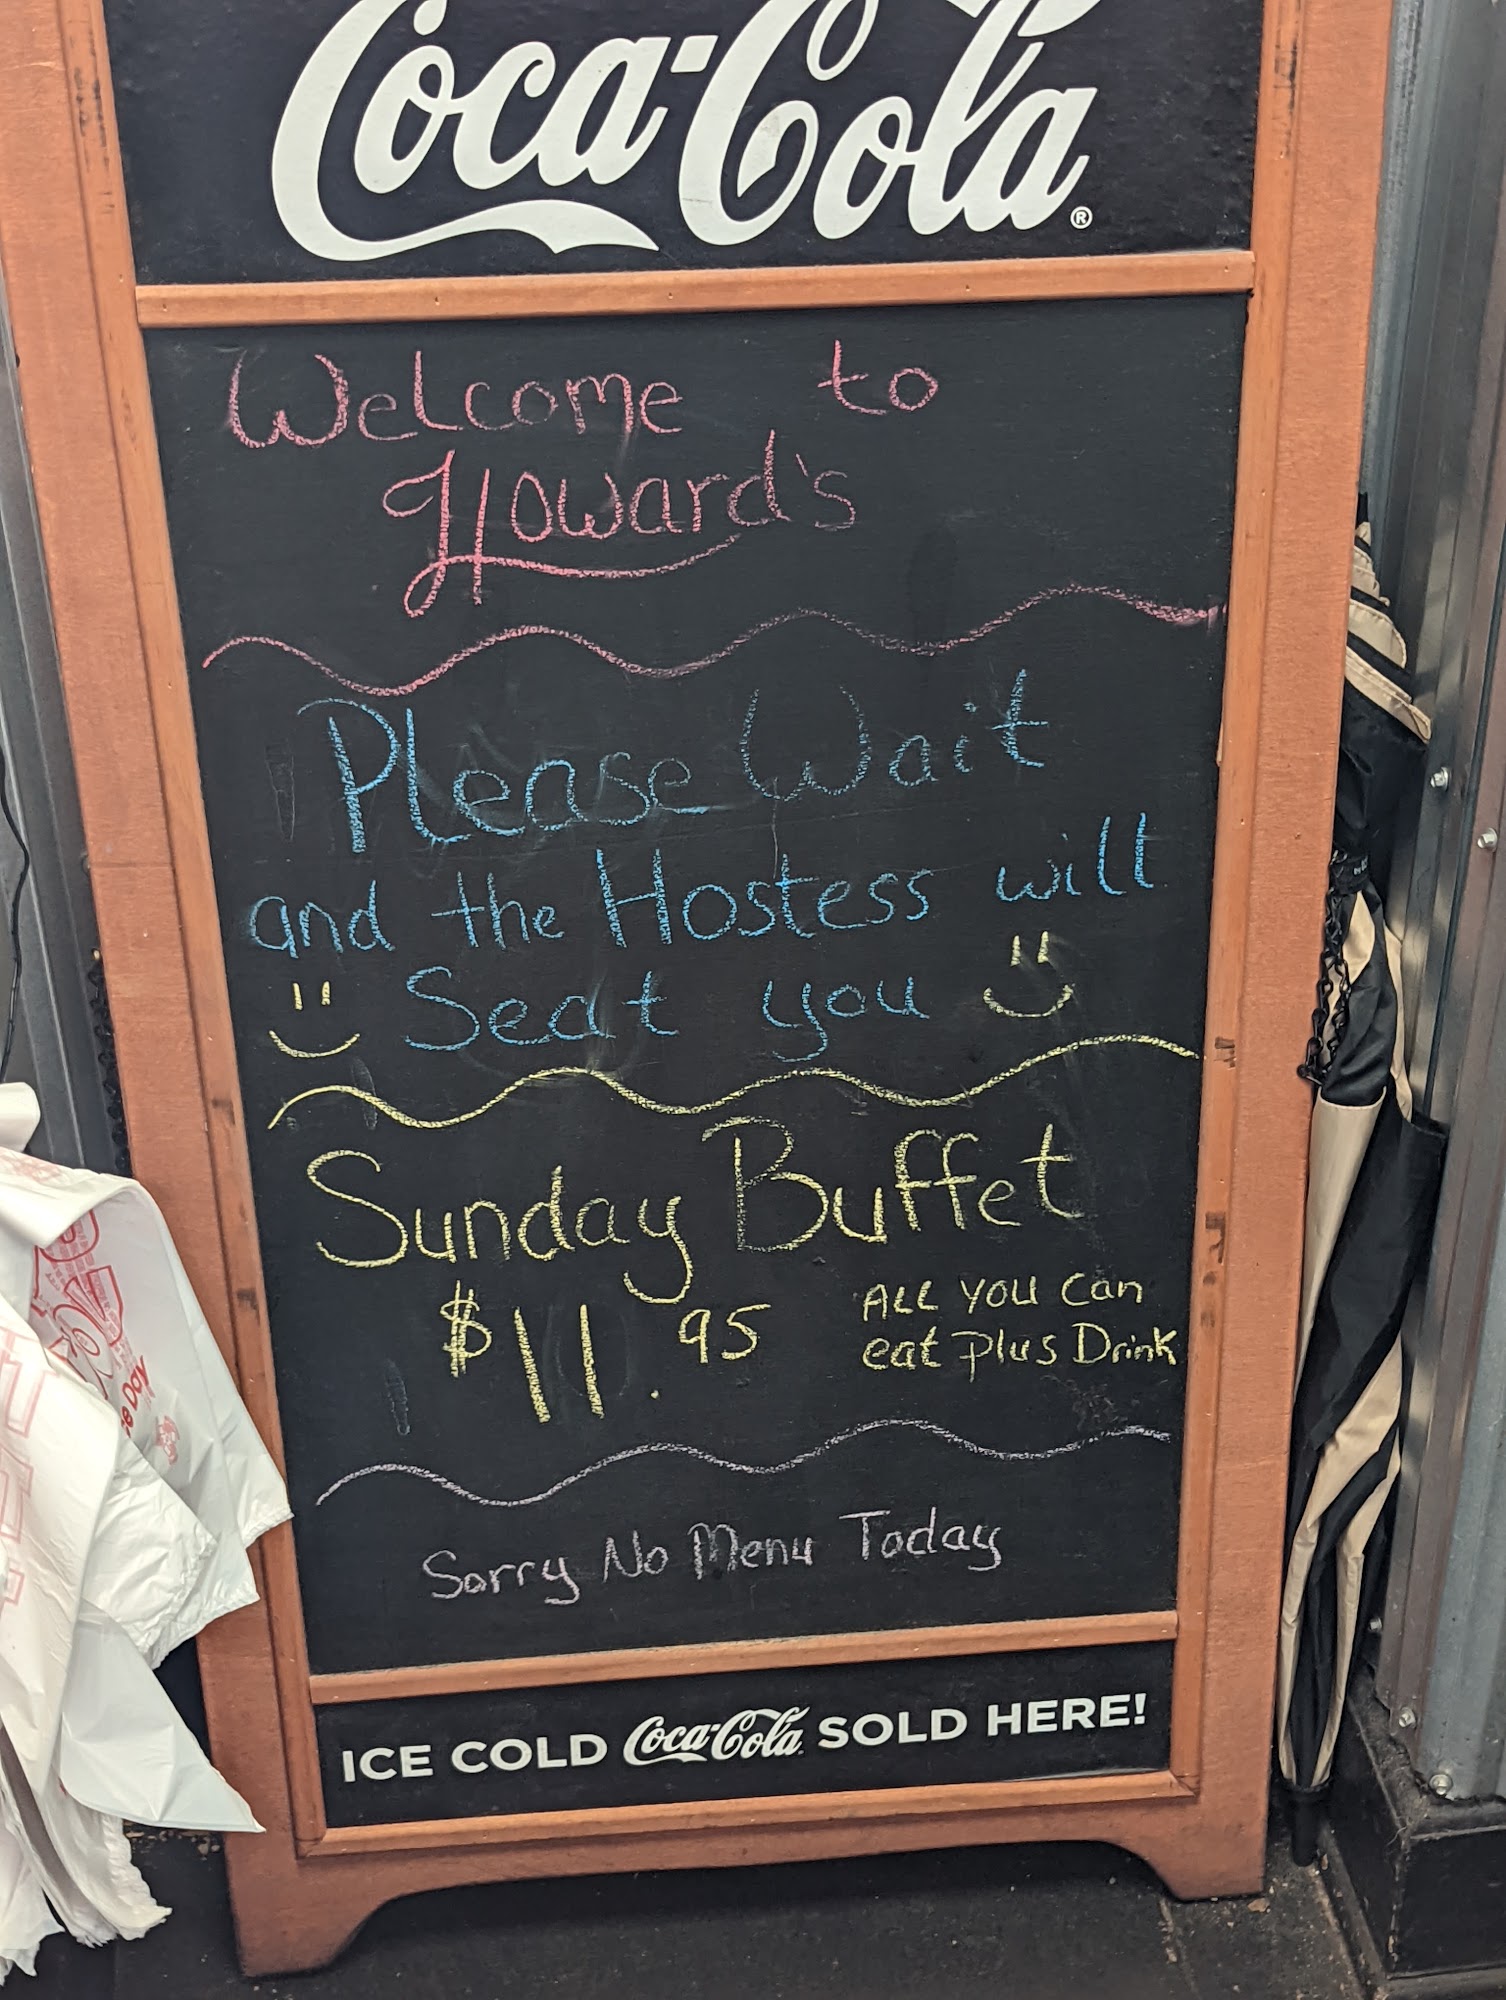 Coca-Cola®
Welcome to
Howard's
Please Wait
and the Hostess will
Seat you
Sunday Buffet
$11.95
ALL YOU Can
eat plus Drink
Sorry No Menu Today
ICE COLD Coca-Cola SOLD HERE!